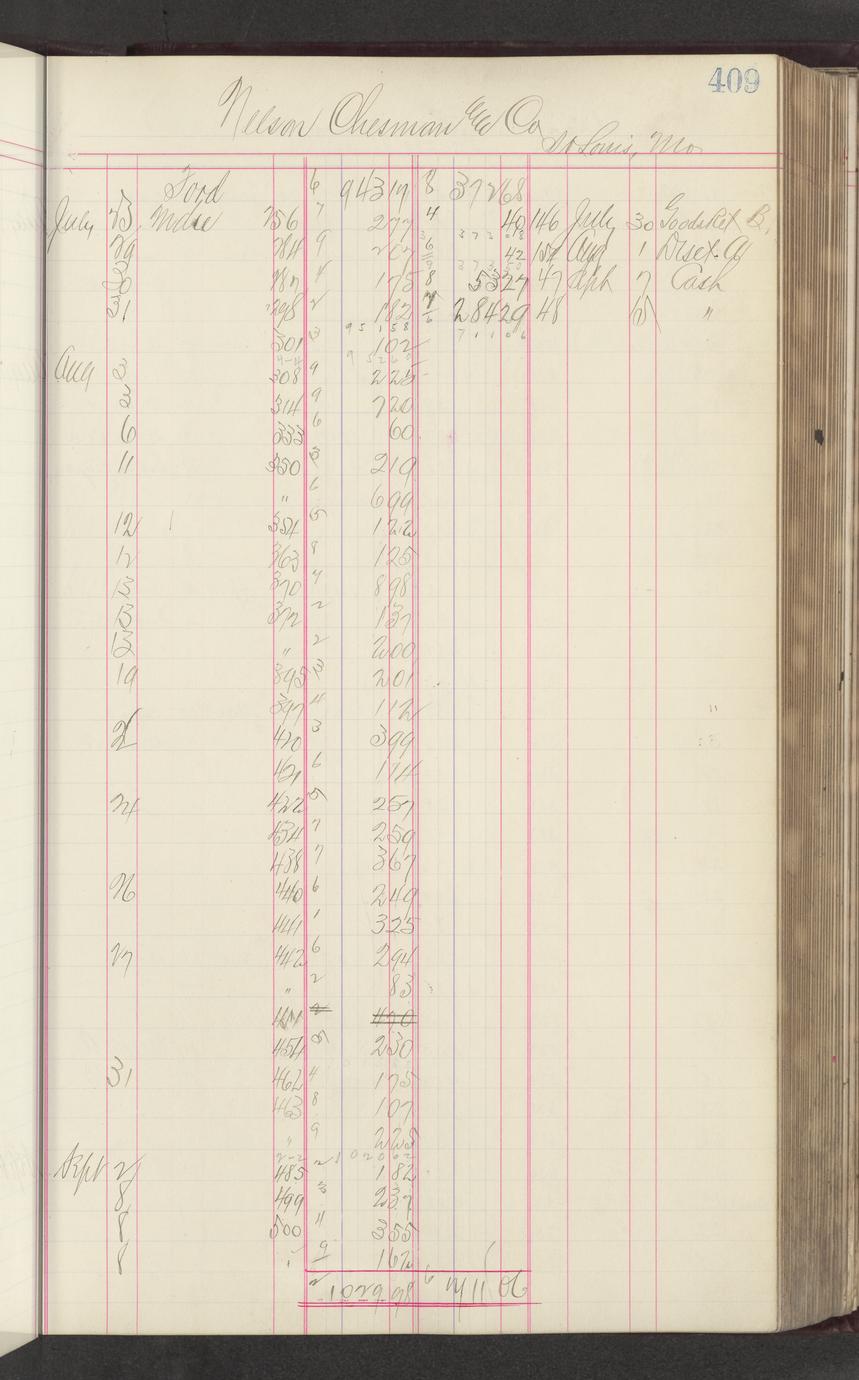 409
Nelson Chesman and Co
St Louis, Mo
Ford 6 943 17 8 372 68
July 23 Mdse 256 7 2 77 4 40 146 July 30 Goods Ret B.
29 284 9 2 67 6 42 Aug 1 Disct.
30 287 4 1 75 8 53 27 47 Sept 7 Cash
31 298 2 1 82 7 284 29 48 "
951 58 711 06
301 3 1 02
Aug 308 9 2 25
314 9 7 20
6 333 6 60
11 350 3 2 19
" 6 6 99
12 354 5 1 22
12 363 8 1 25
13 370 4 8 98
13 372 2 1 37
13 " 2 2 00
19 395 3 2 01
397 4 1 12
420 3 3 99
421 6 1 14
24 422 5 2 57
434 7 2 59
438 7 3 67
26 440 6 2 49
441 1 3 25
27 442 6 2 94
" 2 83
454 5 2 30
31 462 4 1 75
463 8 1 07
" 9 2 25
1020 62
Sept 2 485 2 1 82
8 499 3 2 37
8 500 11 3 55
8 " 9 1 62
2 1029 98 6 711 06